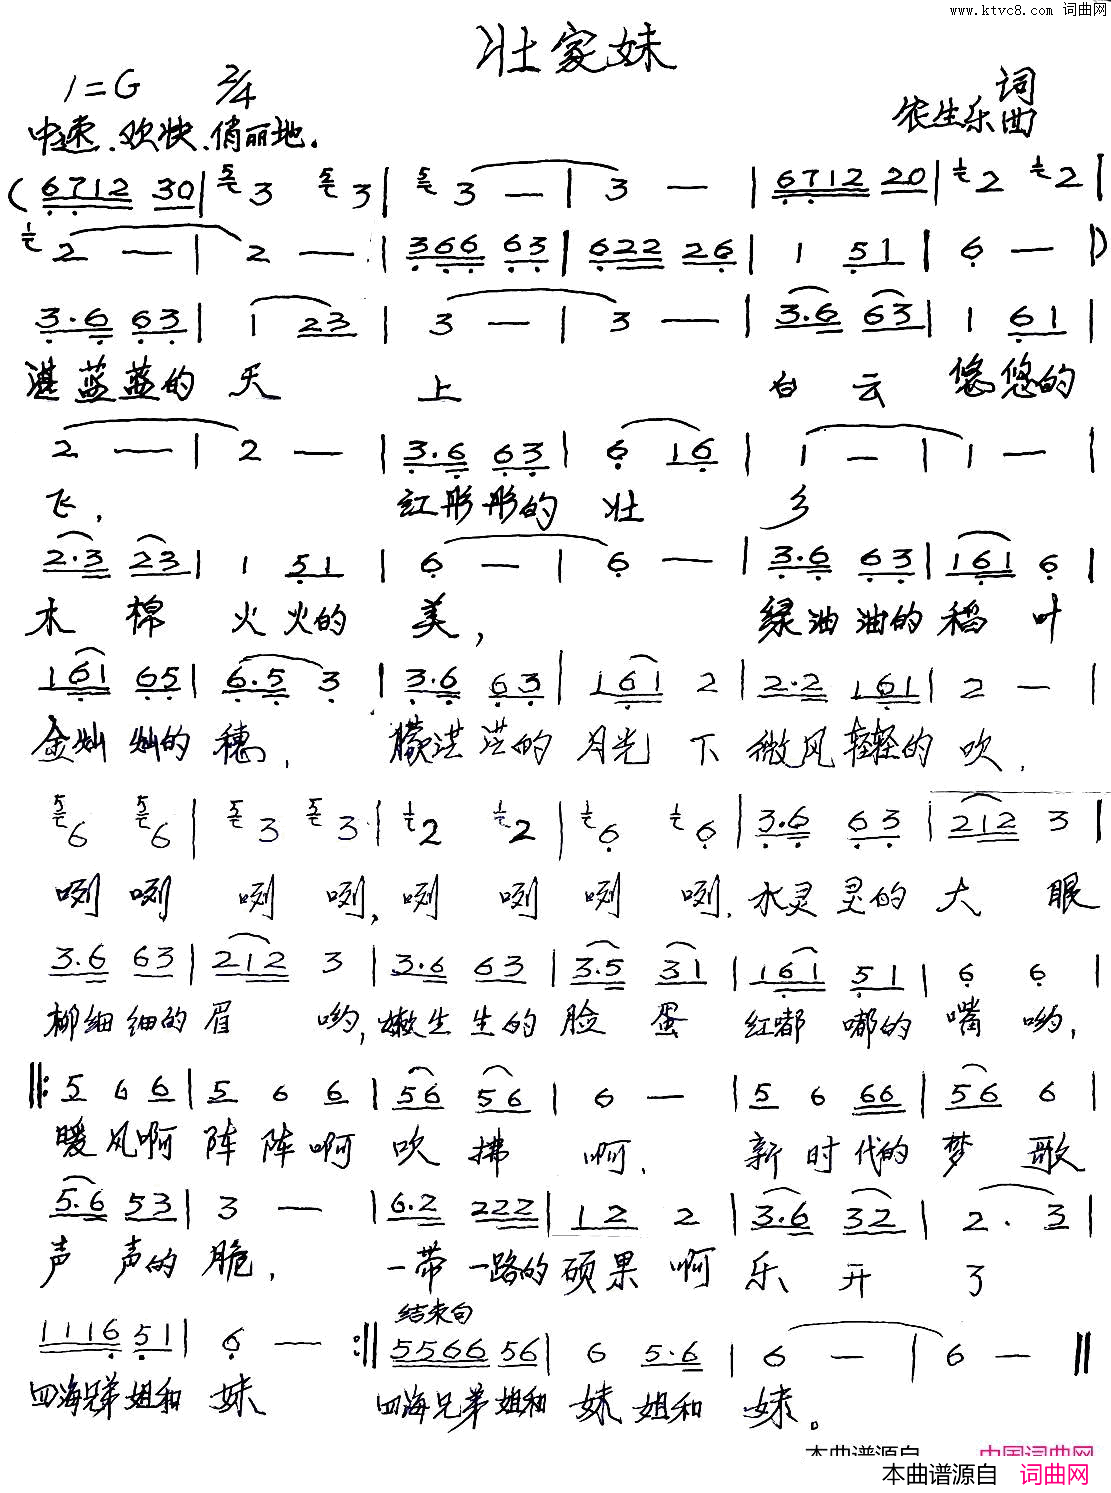 www.ktvc8.com 词曲网
壮家妹
1=G 2/4
词
依生乐曲
中速.欢快.俏丽地.
(6712 30 | 3 3 | 3 — | 3 — | 6712 20 | 2 2 |
2 — | 2 — | 366 63 | 622 26 | 1 51 | 6 — |)
3·6 63 | 1 23 | 3 — | 3 — | 3·6 63 | 1 61 |
湛蓝蓝的天 上 白云 悠悠的
2 — | 2 — | 3·6 63 | 6 16 | 1 — | 1 — |
飞, 红彤彤的壮 乡
2·3 23 | 1 51 | 6 — | 6 — | 3·6 63 | 161 6 |
木棉 火火的 美, 绿油油的稻叶
161 65 | 6·5 3 | 3·6 63 | 161 2 | 2·2 161 | 2 — |
金灿灿的穗, 朦茫茫的月光下 微风轻轻的吹.
6 6 | 3 3 | 2 2 | 6 6 | 3·6 63 | 212 3 |
咧咧 咧咧,咧 咧咧 咧.水灵灵的大眼
3·6 63 | 212 3 | 3·6 63 | 3·5 31 | 161 51 | 6 6 |
柳细细的眉 哟,嫩生生的脸蛋 红嘟嘟的嘴哟,
‖: 5 6 6 | 5 6 6 | 56 56 | 6 — | 5 6 66 | 56 6 |
暖风啊 阵阵啊 吹拂 啊, 新时代的梦歌
5·6 53 | 3 — | 6·2 222 | 12 2 | 3·6 32 | 2 · 3 |
声声的脆, 一带一路的硕果啊 乐开 了
结束句
1116 51 | 6 — :‖ 5566 56 | 6 5·6 | 6 — | 6 — ‖
四海兄弟姐和 妹 四海兄弟姐和 妹姐和 妹。
本曲谱源自 中国词曲网
本曲谱源自 词曲网